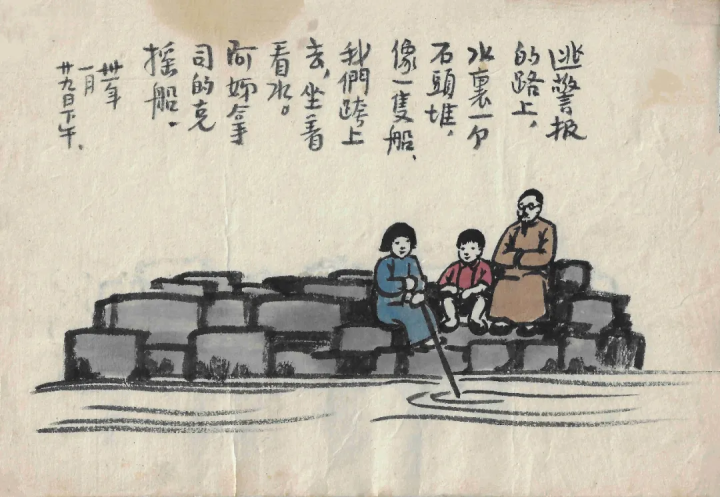 逃警报
的路上，
水裏一个
石頭堆，
像一隻船、
我們跨上
去，坐着
看水。
阿姊拿
司的克
摇船．
卅一年
一月
廿九日下午．